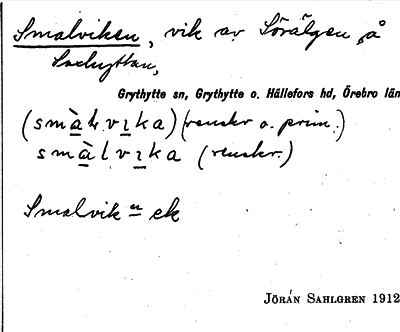 Smalviken, vik av Sörälgen, å
Saxhyttan,
Grythytte sn, Grythytte o. Hällefors hd, Örebro län
(smàlvıka) (renskr o. prim.)
smàlvıka (renskr.)
Smalvik en ek
JÖRAN SAHLGREN 1912